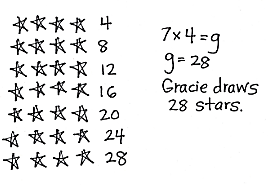 4
8
12
16
20
24
28
7 × 4 = g
g = 28
Gracie draws
28 stars.